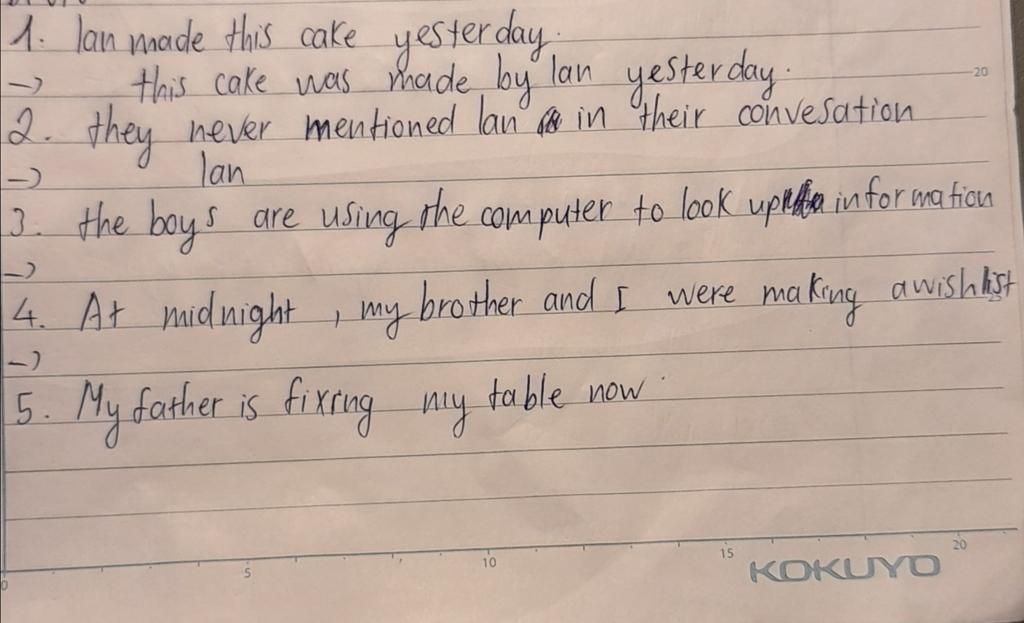 1. lan made this cake yesterday.
-> this cake was made by lan yesterday.
20
2. they never mentioned lan in their convesation
-> lan
3. the boys are using the computer to look up information
->
4. At midnight, my brother and I were making a wish list
->
5. My father is fixing my table now.
0 5 10 15 20
KOKUYO